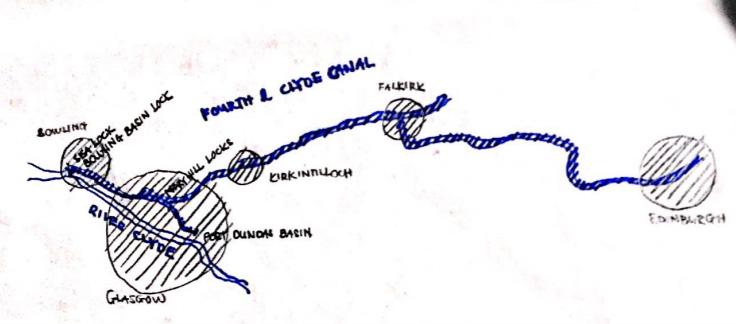 FOURTH & CLYDE CANAL
FALKIRK
BOWLING
SEA LOCK
BOWLING BASIN LOCK
MARYHILL LOCKS
KIRKINTILLOCH
RIVER CLYDE
PORT DUNDAS BASIN
EDINBURGH
GLASGOW